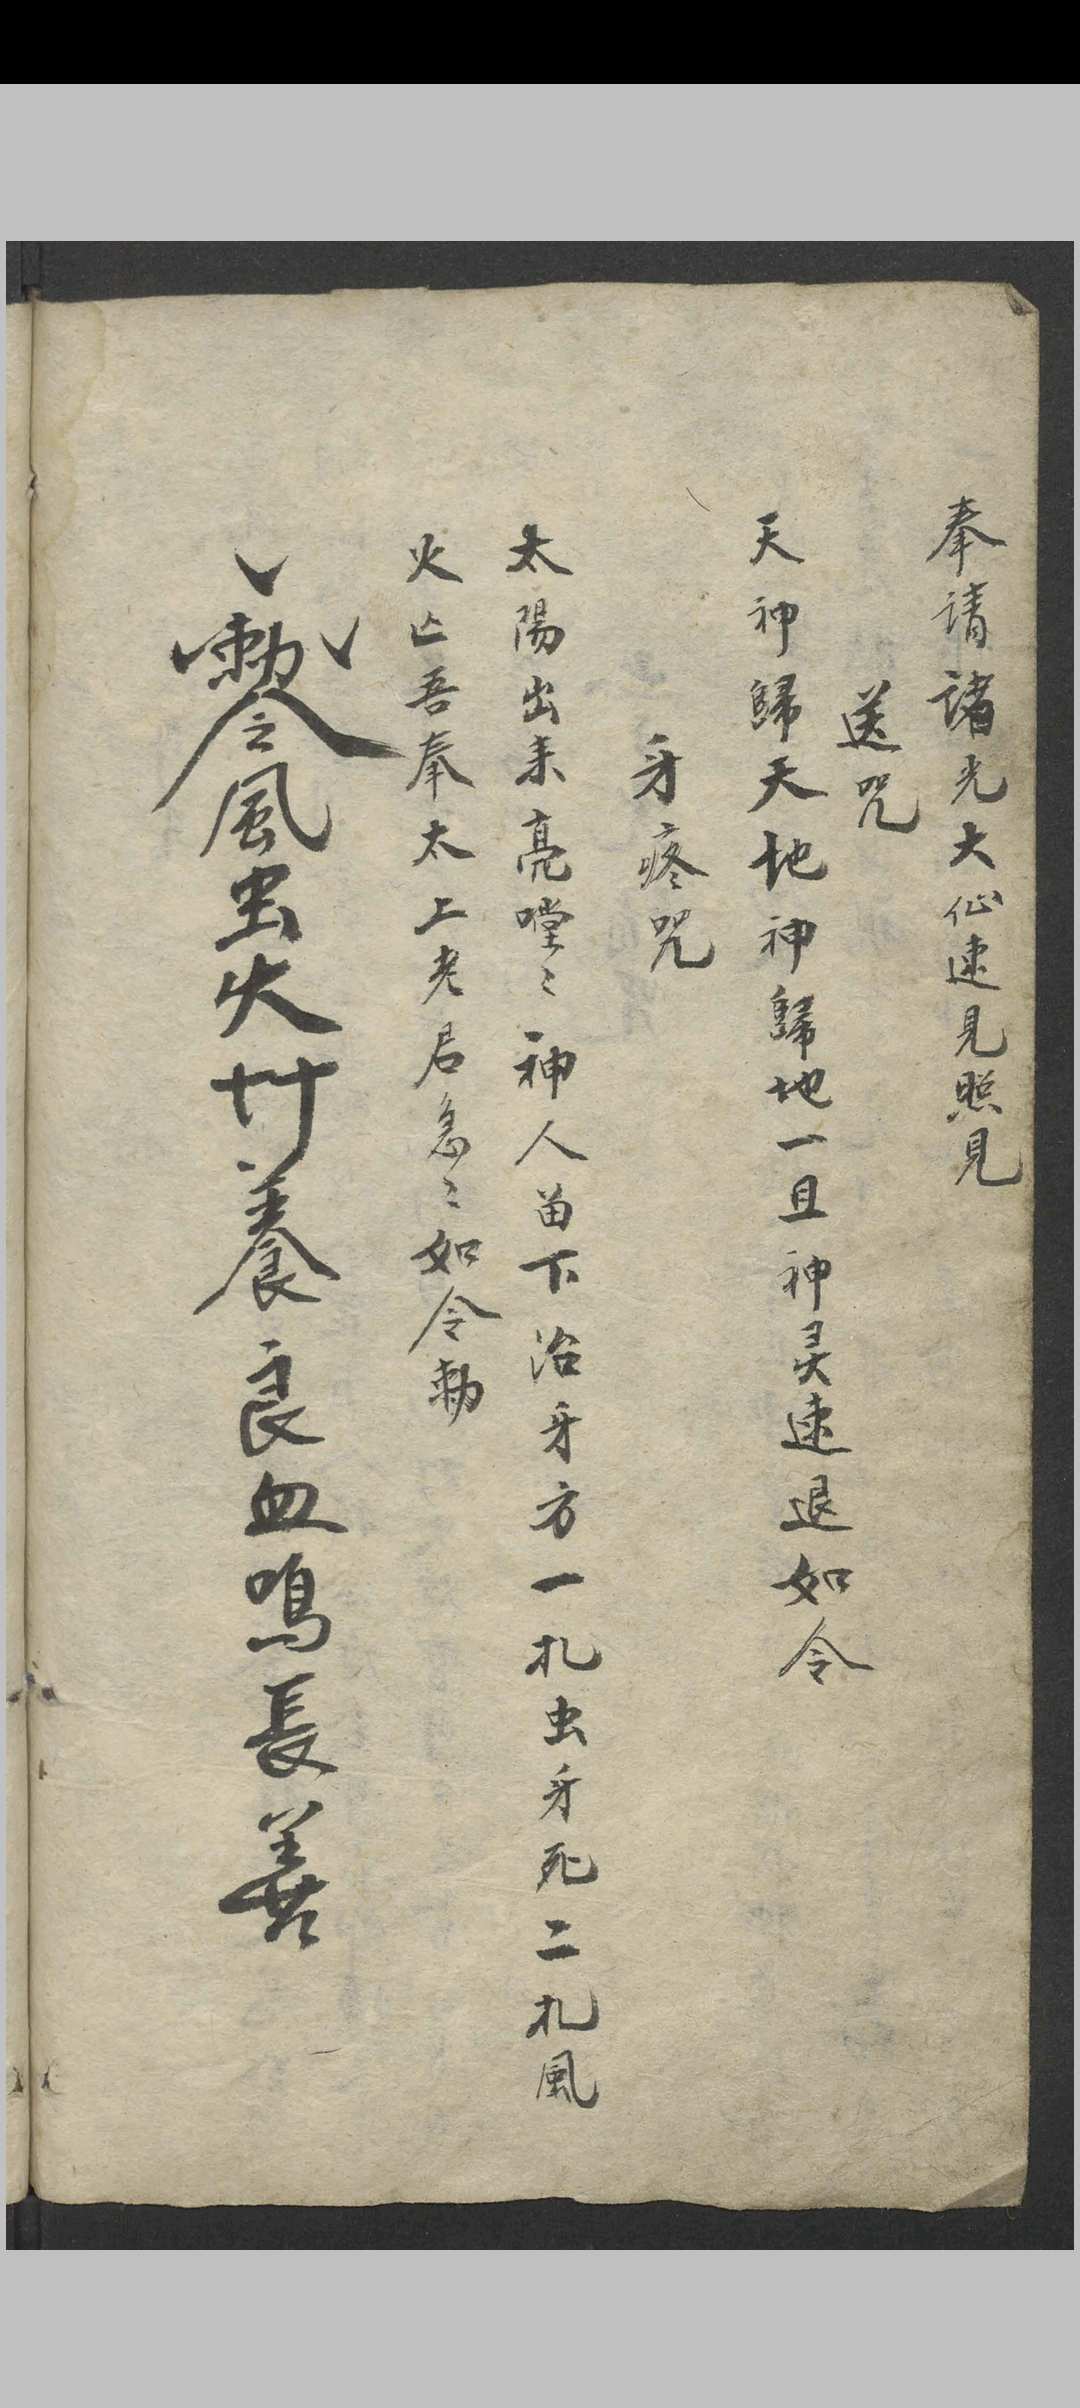 奉請諸光大仙速見照見
送咒
天神歸天地神歸地一旦神灵速退如令
牙疼咒
太陽出来亮嘡〻神人留下治牙方一扎虫牙死二扎風
火亡吾奉太上老君急〻如令勅
勅令風虫火廿養良血鳴長善